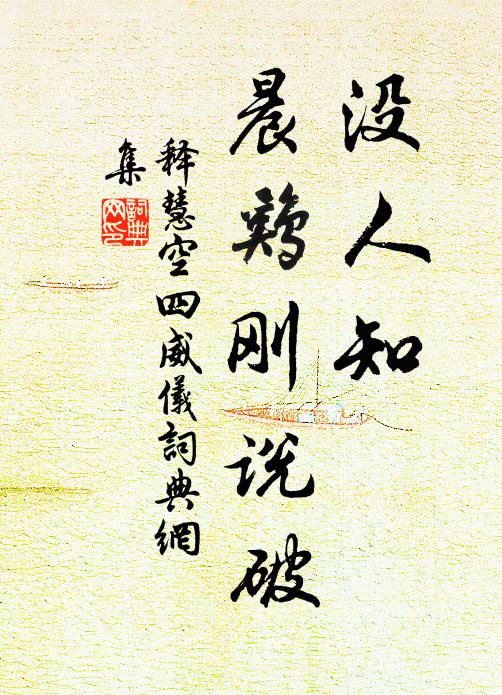 没人知
晨鸡刚说破
释慧空四威儀詞典網
集
詞典
网印